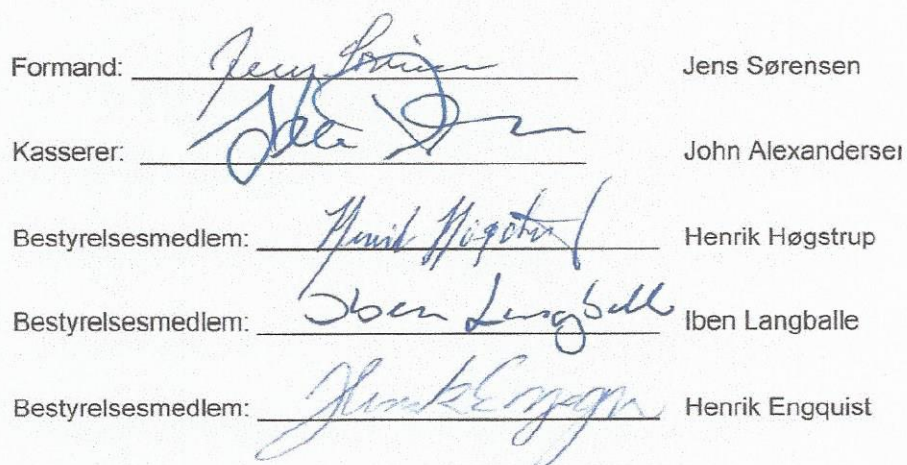 Formand: Jens Sørensen Jens Sørensen
Kasserer: John Alexanderse
Bestyrelsesmedlem: Henrik Høgstrup Henrik Høgstrup
Bestyrelsesmedlem: Iben Langballe Iben Langballe
Bestyrelsesmedlem: Henrik Engquist